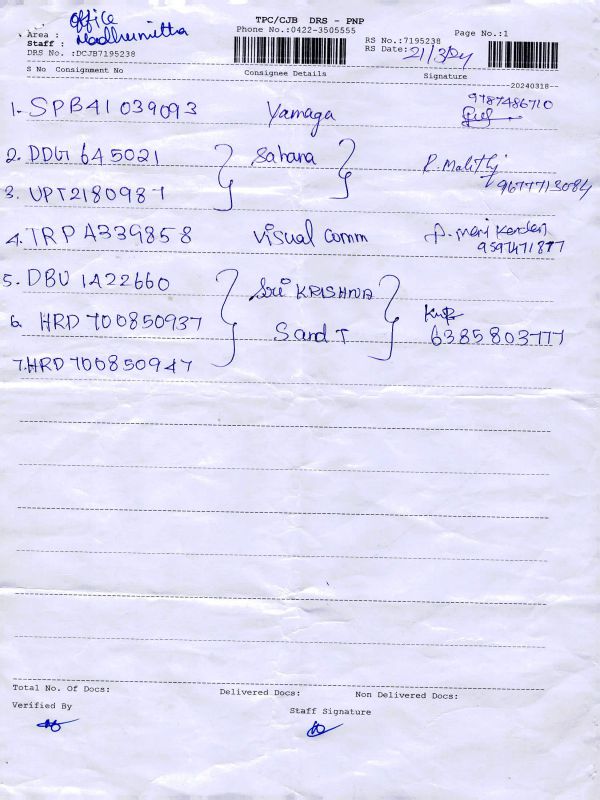 TPC/CJB DRS - PNP
Phone No.:0422-3505555
Page No.:1
RS No.:7195238
RS Date: 21/3/24
Area : office
Staff : Madhumitta
DRS No. :DCJB7195238
S No Consignment No Consignee Details Signature
20240318
1. SPB41 039093 Yamaga 9787486710
2. DDG1 645021 Sahana R. Malithj
3. UPT2180987 9677713084
4. TRP A339858 visual comm
5. DBU 1A22660 Sri KRISHNA
6. HRD 700850937 S and T 6385803777
7. HRD 700850947
Total No. Of Docs: Delivered Docs: Non Delivered Docs:
Verified By Staff Signature